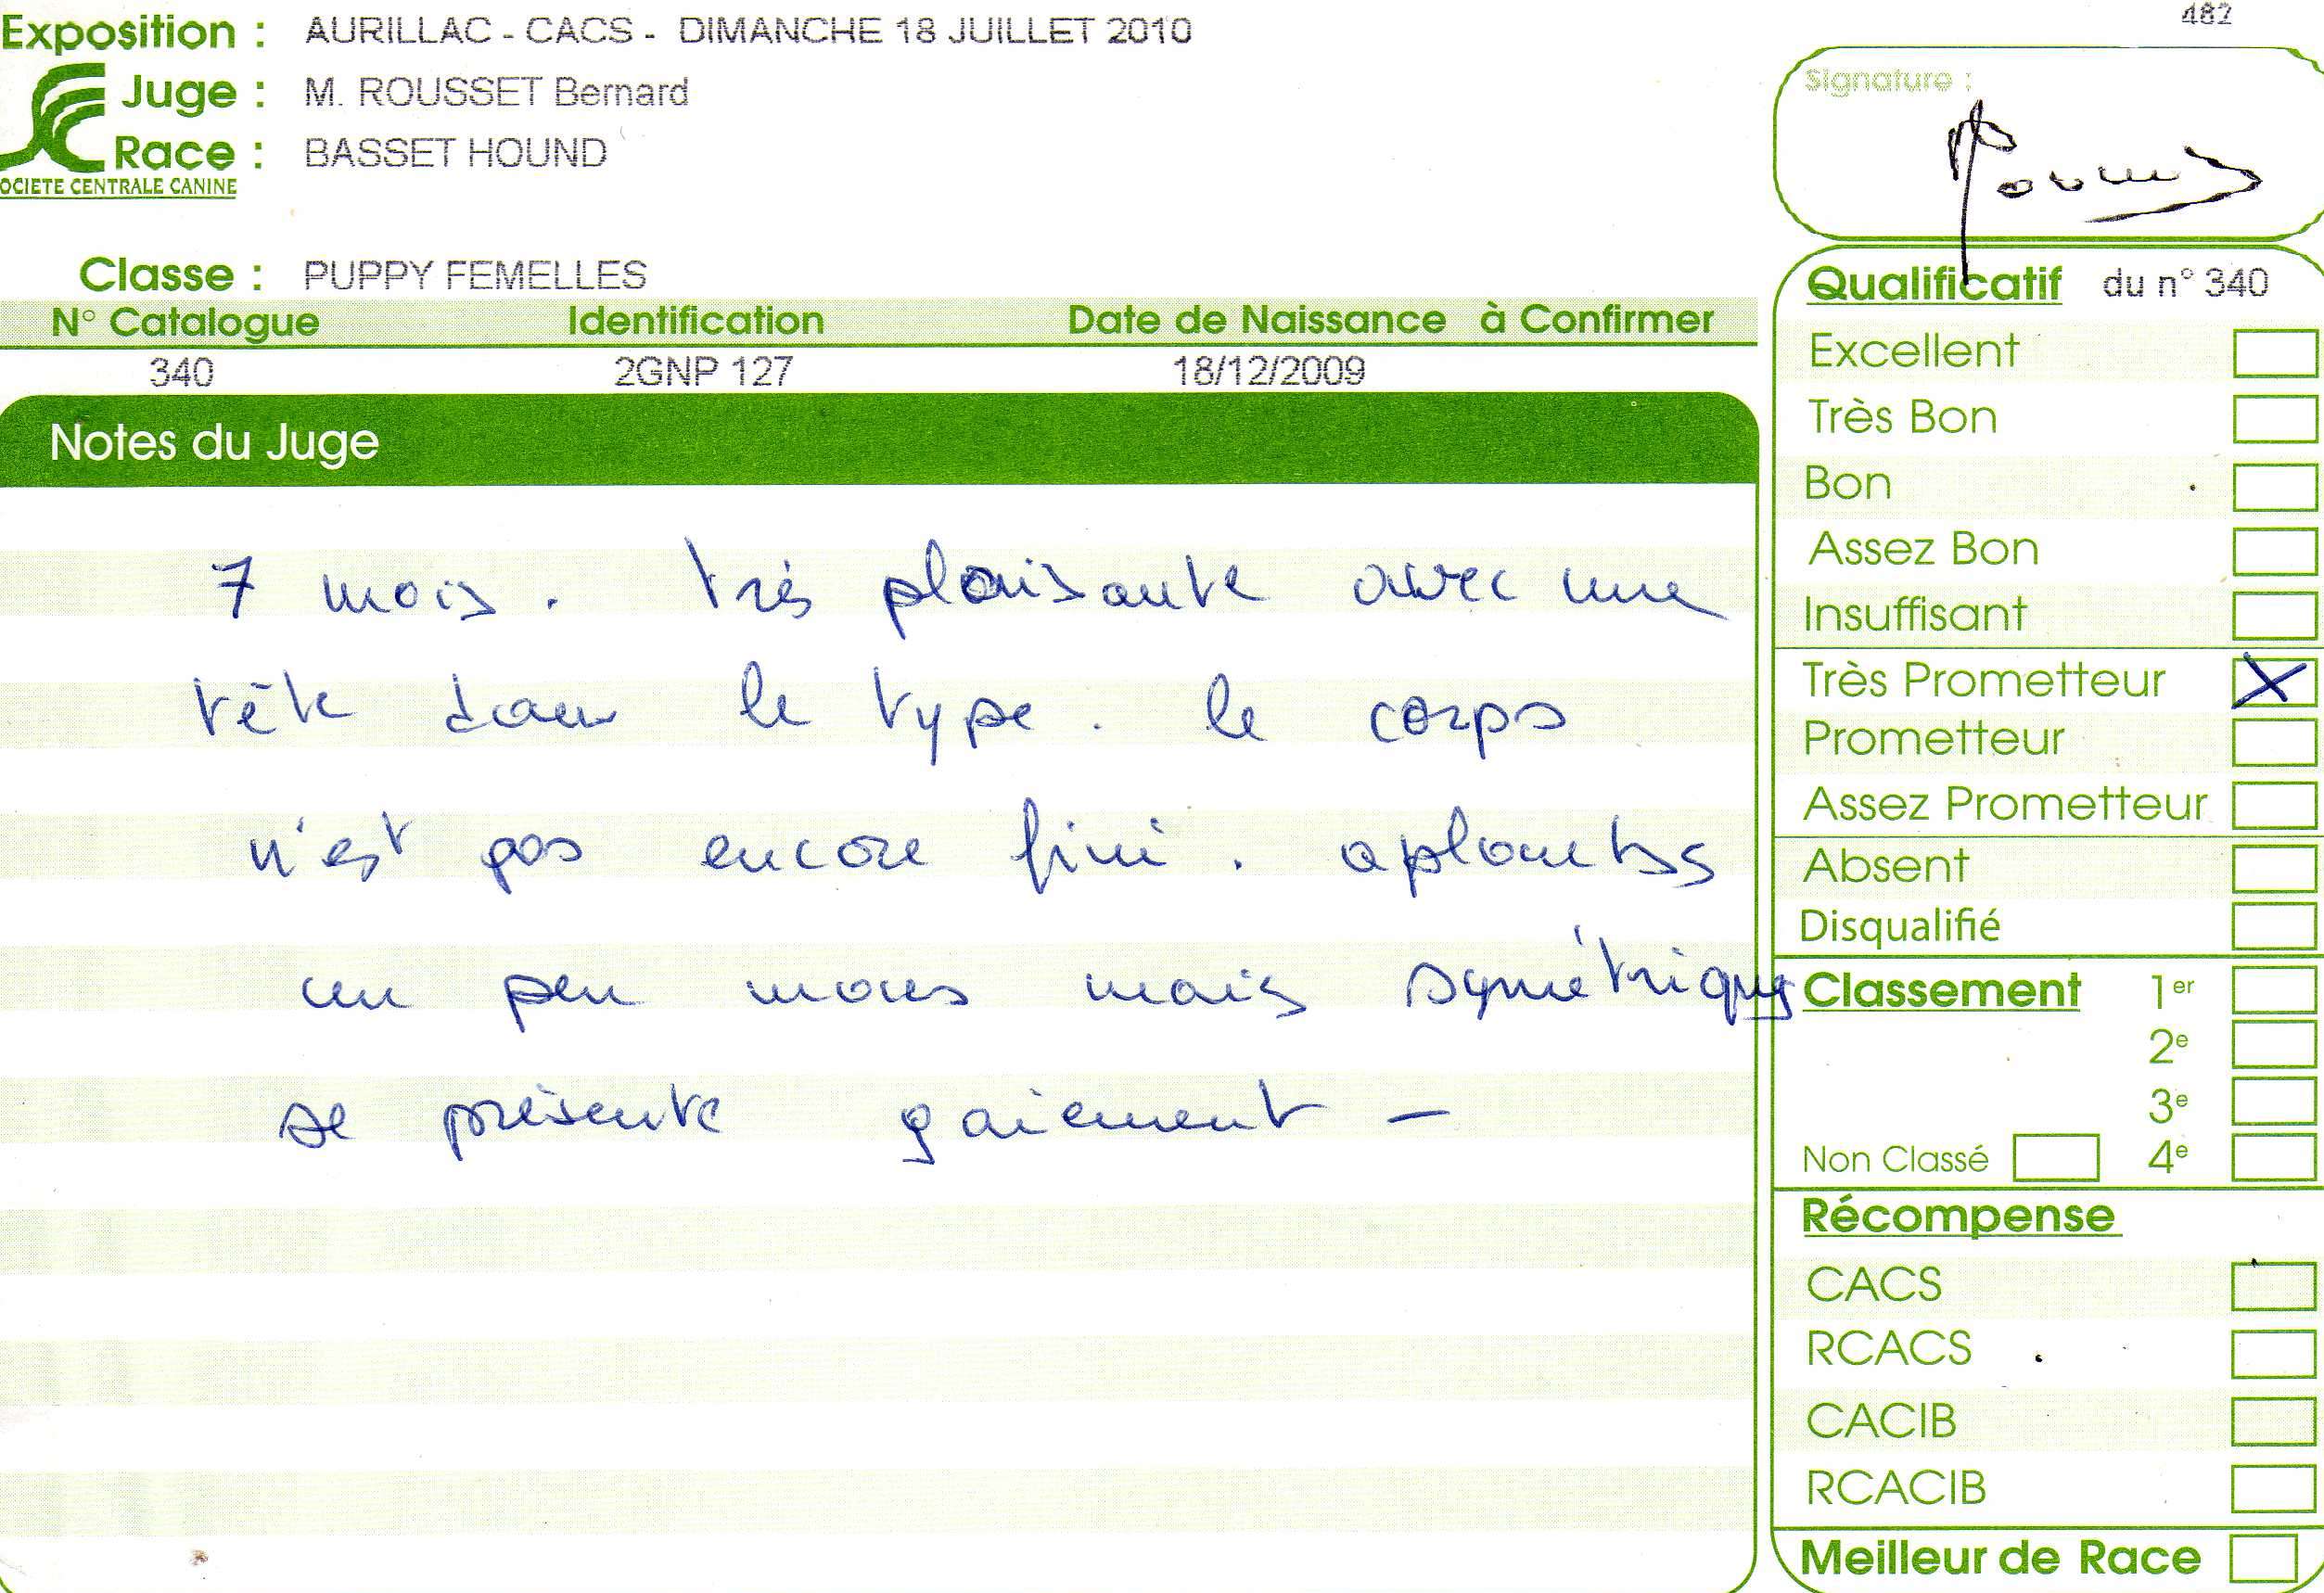 482
Exposition : AURILLAC - CACS - DIMANCHE 18 JUILLET 2010
Juge : M. ROUSSET Bernard
Race : BASSET HOUND
OCIETE CENTRALE CANINE
Signature :
Classe : PUPPY FEMELLES
N° Catalogue Identification Date de Naissance à Confirmer
340 2GNP 127 18/12/2009
Notes du Juge
7 mois. très plaisante avec une
tête dans le type. le corps
n'est pas encore fini. aplombs
un peu mous mais symétriques
se présente gaiement -
Qualificatif du n° 340
Excellent
Très Bon
Bon
Assez Bon
Insuffisant
Très Prometteur X
Prometteur
Assez Prometteur
Absent
Disqualifié
Classement 1er
2e
3e
Non Classé 4e
Récompense
CACS
RCACS
CACIB
RCACIB
Meilleur de Race